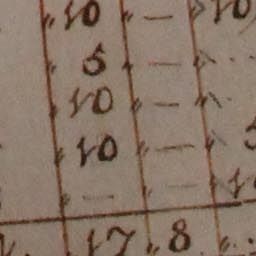 „ 10 „ — „ 10
„ 5 „ — „
„ 10 „ — „
„ 10 „ — „
„ — „ — „
17 „ 8 „